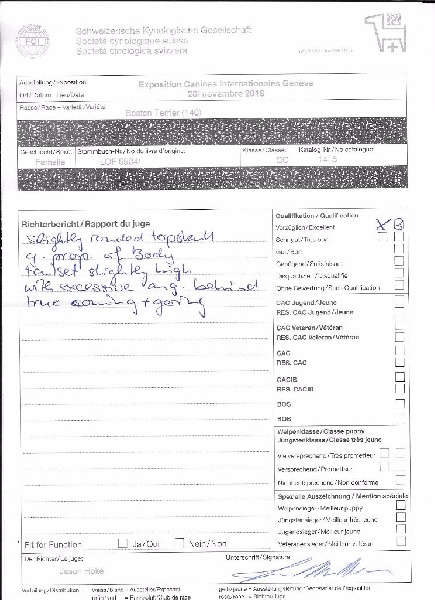 Schweizerische Kynologische Gesellschaft
Société cynologique suisse
Società cinologica svizzera
FCI
Ausstellung / Exposition
Exposition Canines Internationales Genève
Ort / Datum Lieu / Date
Rasse / Race – Varietät / Variété
Boston Terrier (140)
Geschlecht / Sexe
Stammbuch-Nr. / No du livre d'origine
Klasse / Classe
Katalog-Nr. / No catalogue
Femelle
LOF
CC
1415
Richterbericht / Rapport du juge
slightly rounded topskull
g. prop. of Body
tailset slightly high
with excessive ang. behind
true coming + going
Qualifikation / Qualification
Vorzüglich / Excellent
X
Sehr gut / Très bon
Gut / Bon
Genügend / Suffisant
Disqualifiziert / Disqualifié
Ohne Bewertung / Sans Qualification
CAC Jugend / Jeune
RES. CAC Jugend / Jeune
CAC Veteran / Vétéran
RES. CAC Veteran / Vétéran
CAC
RES. CAC
CACIB
RES. CACIB
BOG
BOB
Welpenklasse / Classe puppy
Jüngstenklasse / Classe très jeune
Vielversprechend / Très prometteur
Versprechend / Prometteur
Nicht entsprechend / Non conforme
Spezielle Auszeichnung / Mention spéciale
Welpensieger / Meilleur puppy
Jüngstensieger / Meilleur très jeune
Jugendsieger / Meilleur jeune
Veteranensieger / Meilleur vétéran
Fit for Function
Ja / Oui
Nein / Non
Der Richter / Le juge:
Unterschrift / Signature
Hoke
Verteilung / Distribution